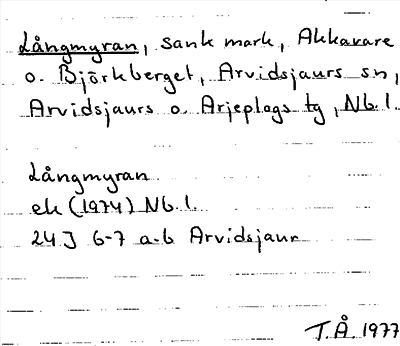 Långmyran, sank mark, Akkavare
o. Björkberget, Arvidsjaurs sn,
Arvidsjaurs o. Arjeplogs tg, Nb. l.
Långmyran
ek (1974) Nb. l.
24J 6-7 a-b Arvidsjaur
T.Å 1977